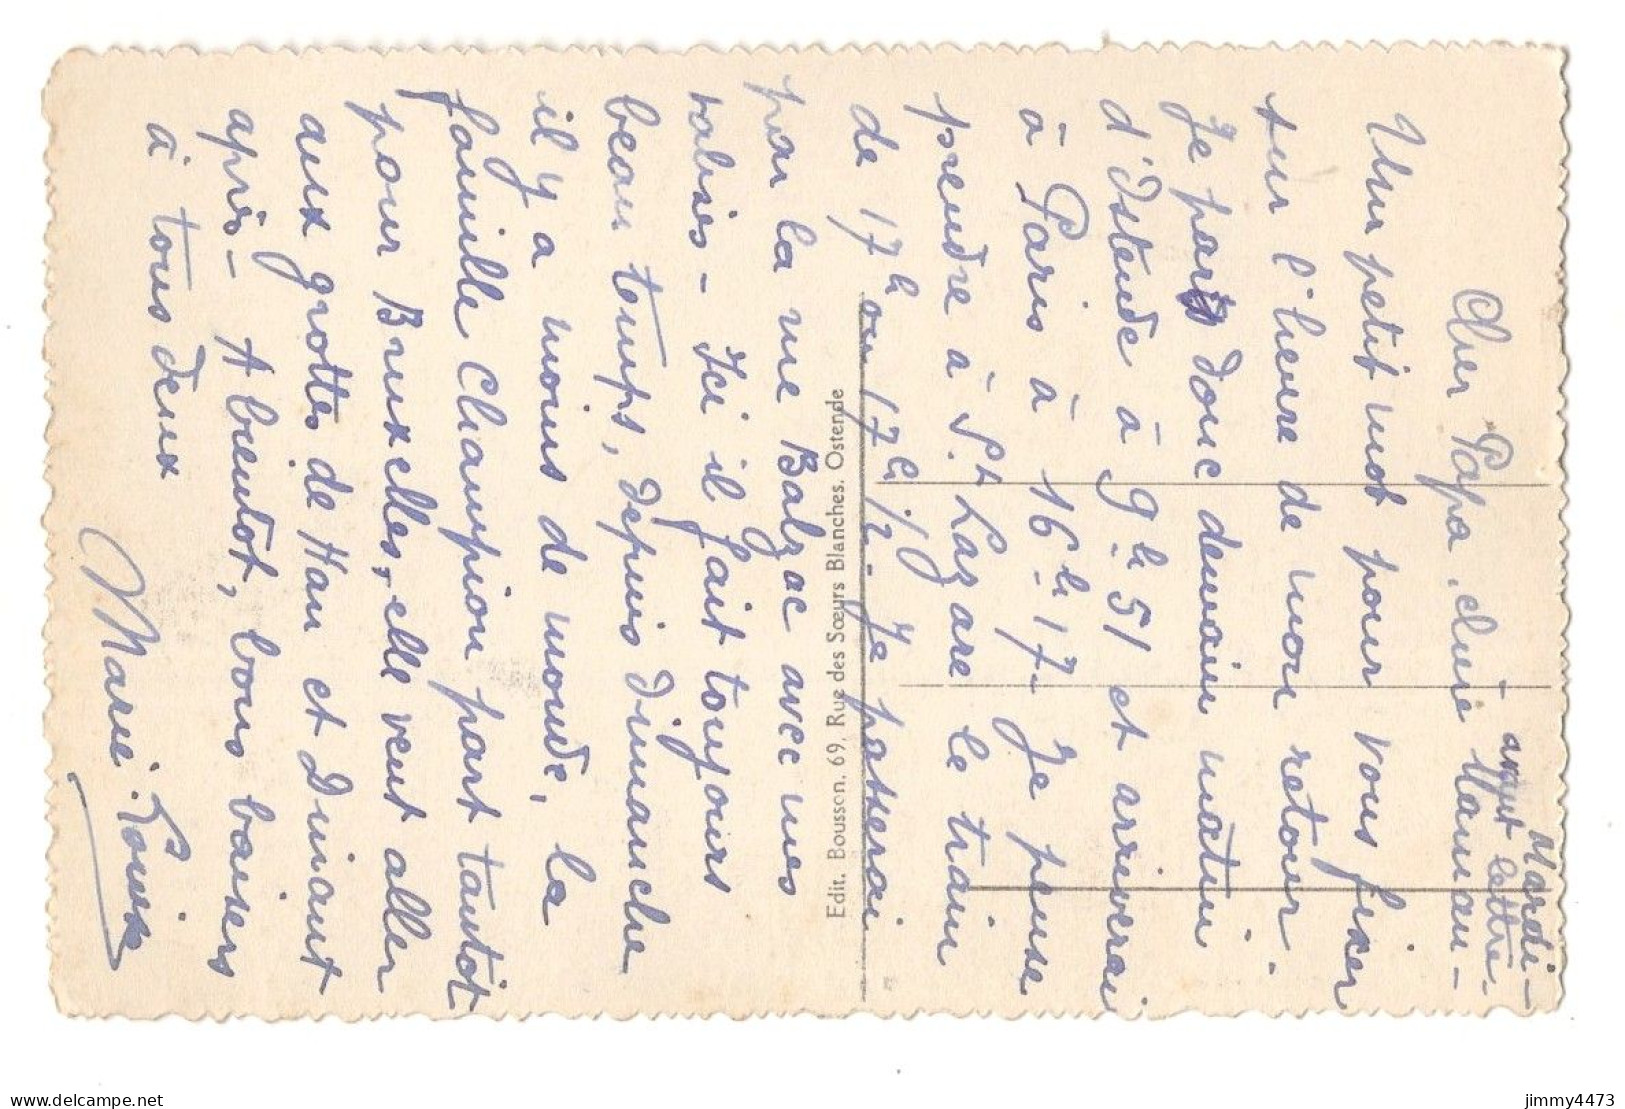 Mardi -
avant lettre -
Cher Papa, chère Maman -
Un petit mot pour vous fixer
sur l'heure de mon retour.
Je pars donc demain matin
d'Ostende à 9h 51 et arriverai
à Paris à 16h 17 - Je pense
prendre à St Lazare le train
de 17h ou 17h 1/2 - Je passerai
par la rue Balzac avec mes
valises - Ici il fait toujours
beau temps, depuis dimanche
il y a moins de monde, la
famille Champion part tantôt
pour Bruxelles, elle veut aller
aux grottes de Han et Dinant
après - A bientôt, bons baisers
à tous deux
Marie-Louise
Edit. Bousson, 69, Rue des Sœurs Blanches, Ostende
delcampe.net
jimmy4473